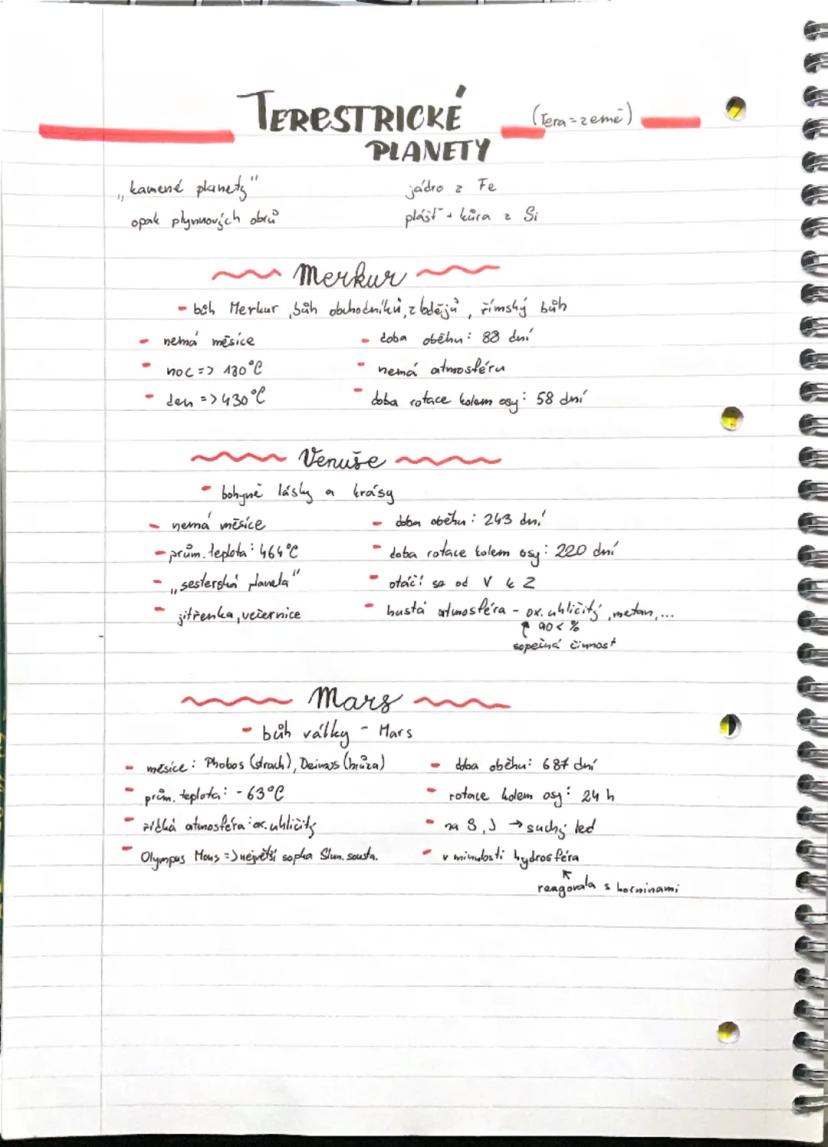 TERESTRICKÉ (Tera=země)
PLANETY
„kamené planety" jádro z Fe
opak plynnových obrů plášť + kůra z Si
Merkur
- bůh Merkur, bůh obchodníků, zlodějů, římský bůh
- nemá měsíce - doba oběhu: 88 dní
- noc => 180°C - nemá atmosféru
- den => 430°C - doba rotace kolem osy: 58 dní
Venuše
- bohyně lásky a krásy
- nemá měsíce - doba oběhu: 243 dní
- prům. teplota: 464°C - doba rotace kolem osy: 220 dní
- „sesterská planeta" - otáčí se od V k Z
- jitřenka, večernice - hustá atmosféra - ox. uhličitý, metan, ...
90 < %
sopečná činnost
Mars
- bůh války - Mars
- měsíce: Phobos (strach), Deimos (hrůza) - doba oběhu: 687 dní
- prům. teplota: -63°C - rotace kolem osy: 24 h
- řídká atmosféra: ox. uhličitý - na S, J → suchý led
- Olympus Mons => největší sopka Slun. sousta. - v minulosti hydrosféra
reagovala s horninami